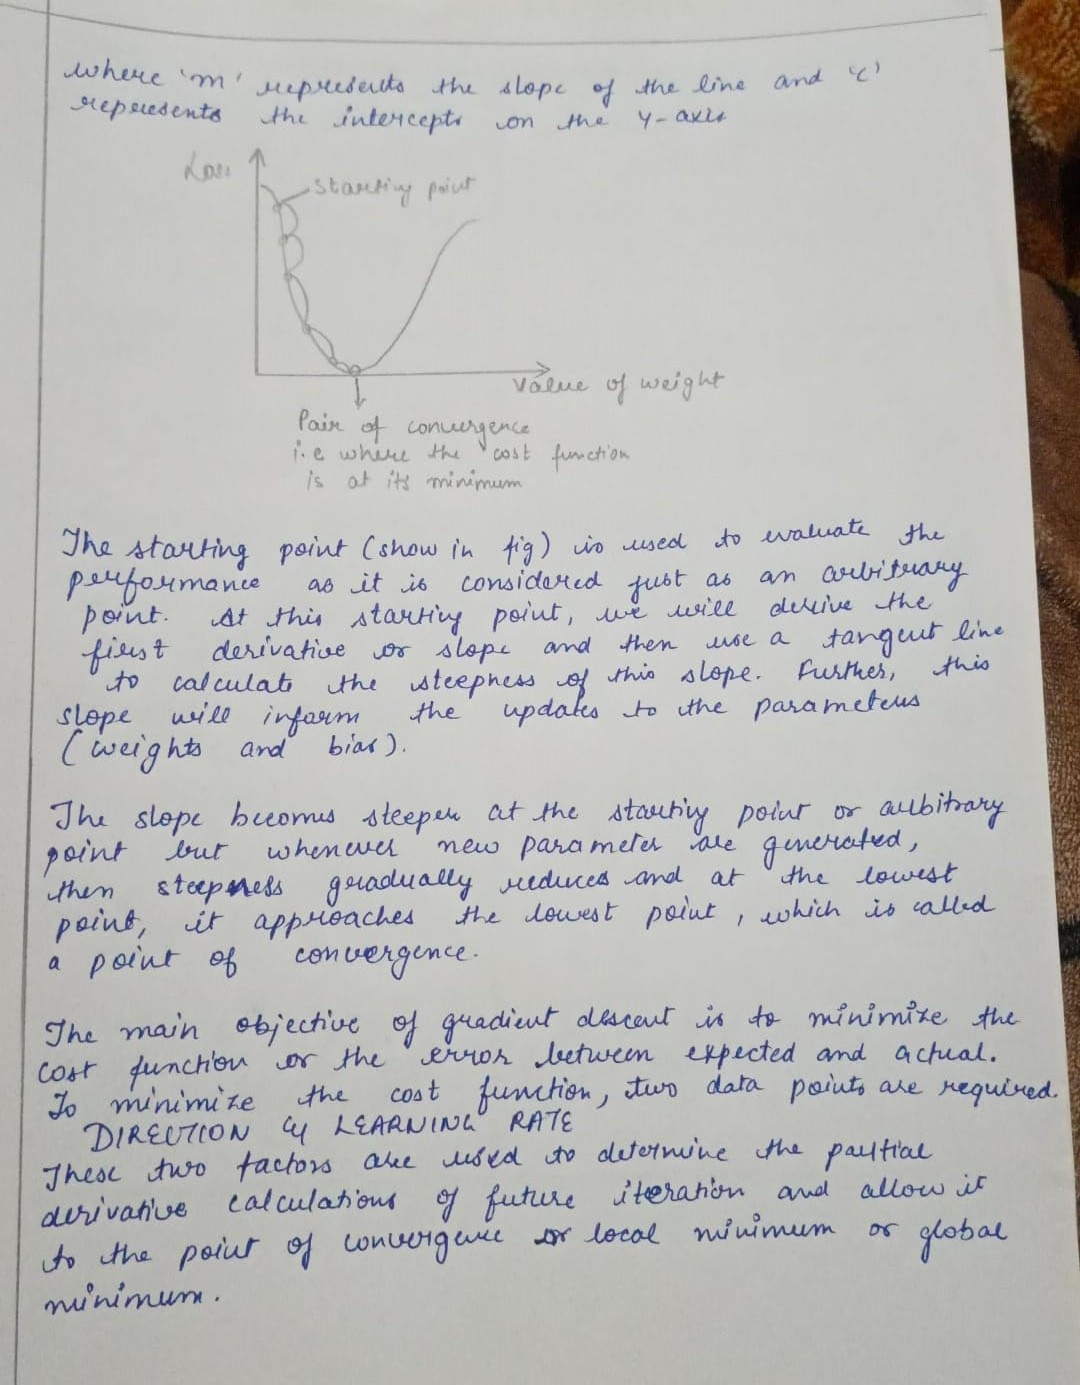 where 'm' represents the slope of the line and 'c'
represents the intercepts on the Y-axis
Loss
starting point
Value of weight
Pair of convergence
i.e where the cost function
is at its minimum
The starting point (show in fig) is used to evaluate the
performance as it is considered just as an arbitrary
point. At this starting point, we will derive the
first derivative or slope and then use a tangent line
to calculate the steepness of this slope. Further, this
slope will inform the updates to the parameters
(weights and bias).
The slope becomes steeper at the starting point or arbitrary
point but whenever new parameter are generated,
then steepness gradually reduces and at the lowest
point, it approaches the lowest point, which is called
a point of convergence.
The main objective of gradient descent is to minimize the
cost function or the error between expected and actual.
To minimize the cost function, two data points are required.
DIRECTION & LEARNING RATE
These two factors are used to determine the partial
derivative calculations of future iteration and allow it
to the point of convergence or local minimum or global
minimum.